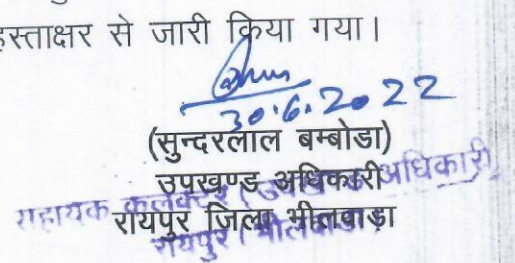 हस्ताक्षर से जारी किया गया।
30.6.2022
(सुन्दरलाल बम्बोडा)
उपखण्ड अधिकारी
रायपुर जिला भीलवाड़ा
सहायक कलक्टर अधिकारी
रायपुर